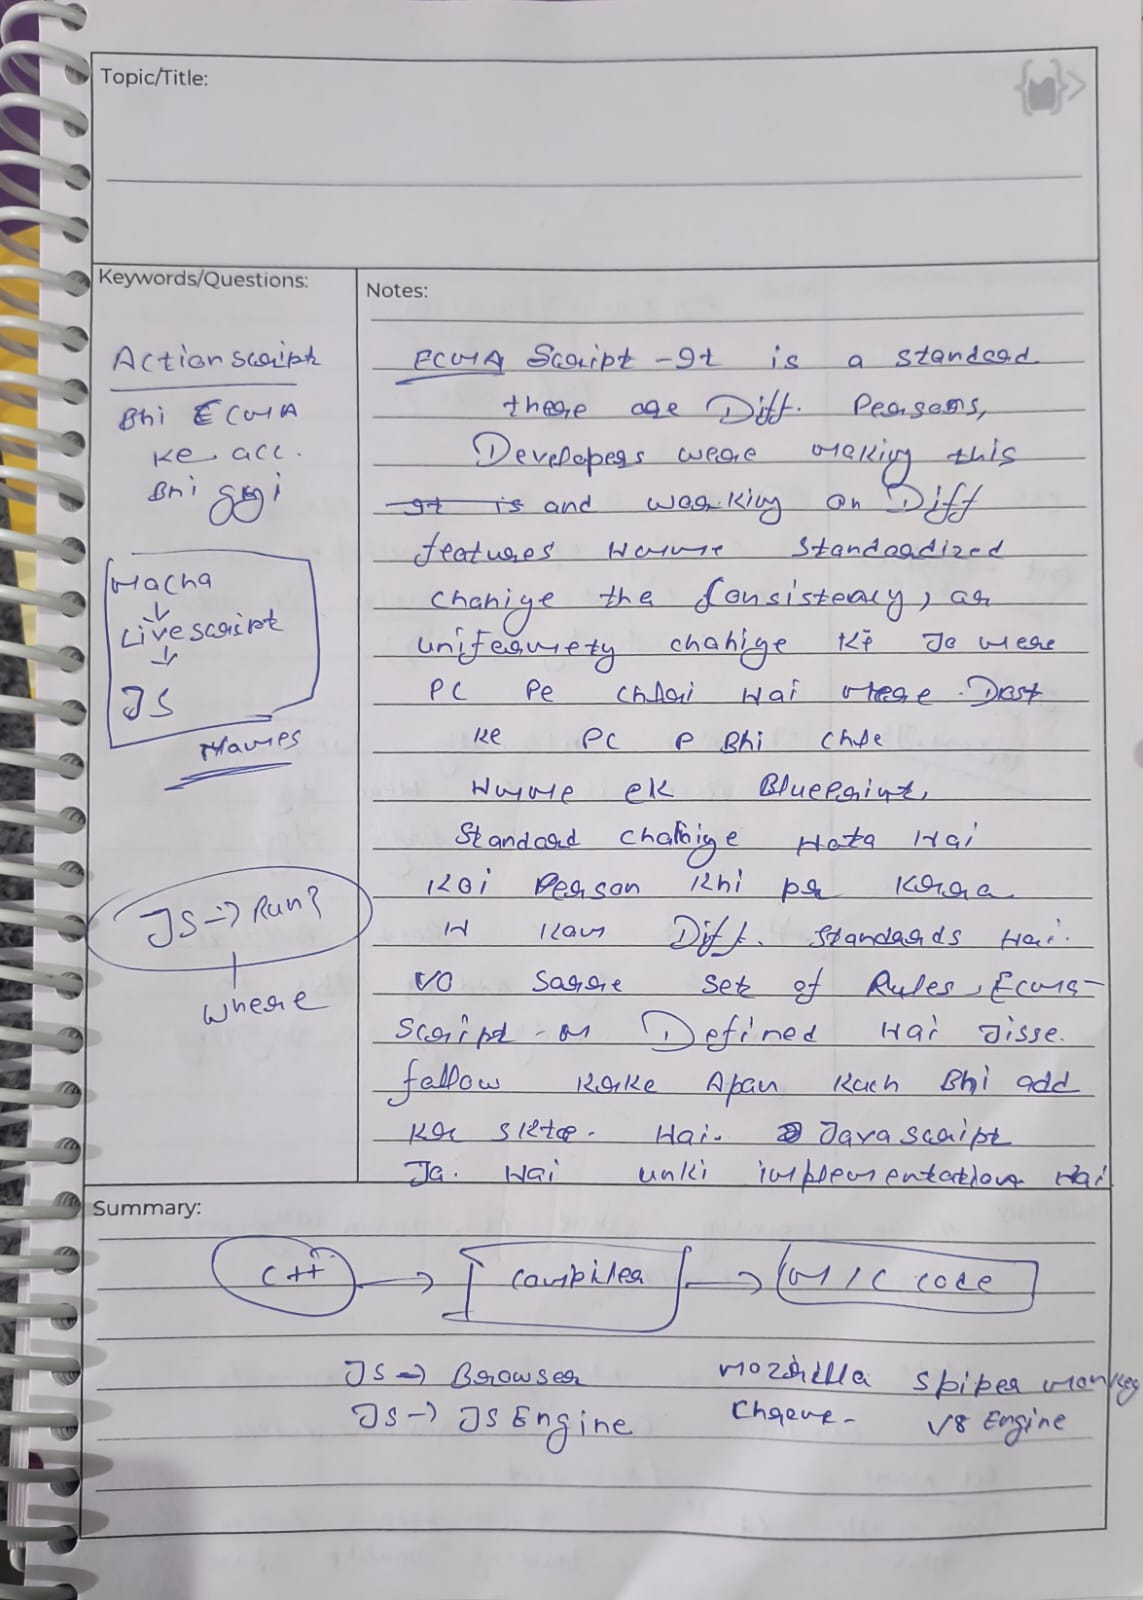 Topic/Title:
Keywords/Questions:
Action script
Bhi ECMA
ke acc.
Bhi
Macha
↓
Livescript
↓
JS
Names
JS → Run?
where
Notes:
ECMA Script - It is a standard
there are Diff. Persons,
Developers were making this
It is and working on Diff
features Hamme standardized
chahiye the Consistency, or
uniformety chahiye ki Jo mere
PC Pe chlri Hai mere Dost
ke PC P Bhi chle
Hamme ek Blueprint,
Standard chahiye Hota Hai
Koi Person Khi pr
Diff. standards Hai.
vo saare set of Rules, Ecma-
script m Defined Hai Jisse
follow krke Apan Kuch Bhi add
kr skte. Hai. Javascript
Jo. Hai unki implementation Hai
Summary:
C++ → Compiler → M/C code
JS → Browser Mozrilla Spiper monkey
JS → JS Engine Chrome - V8 Engine